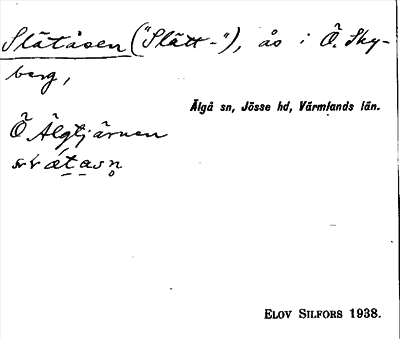 Slätåsen ("Slätt-"), ås i Ö. Sky-
berg,
Älgå sn, Jösse hd, Värmlands län.
Ö Älgtjärnen
ELOV SILFORS 1938.